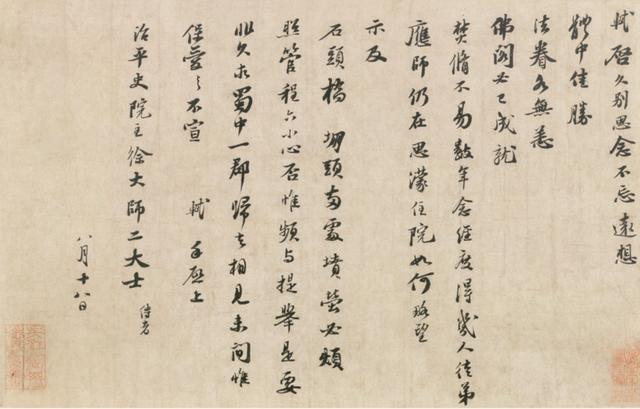 軾啟久別思念不忘遠想
體中佳勝
法眷各無恙
佛閣必已成就
焚脩不易數年念經度得幾人徒弟
應師仍在思濛住院如何略望
示及
石頭橋堋頭兩處墳塋必煩
照管程六小心否惟頻與提舉是要
非久求蜀中一郡歸去相見未間惟
保愛之不宣 軾手啟上
治平史院主徐大師二大士 侍者
八月十八日